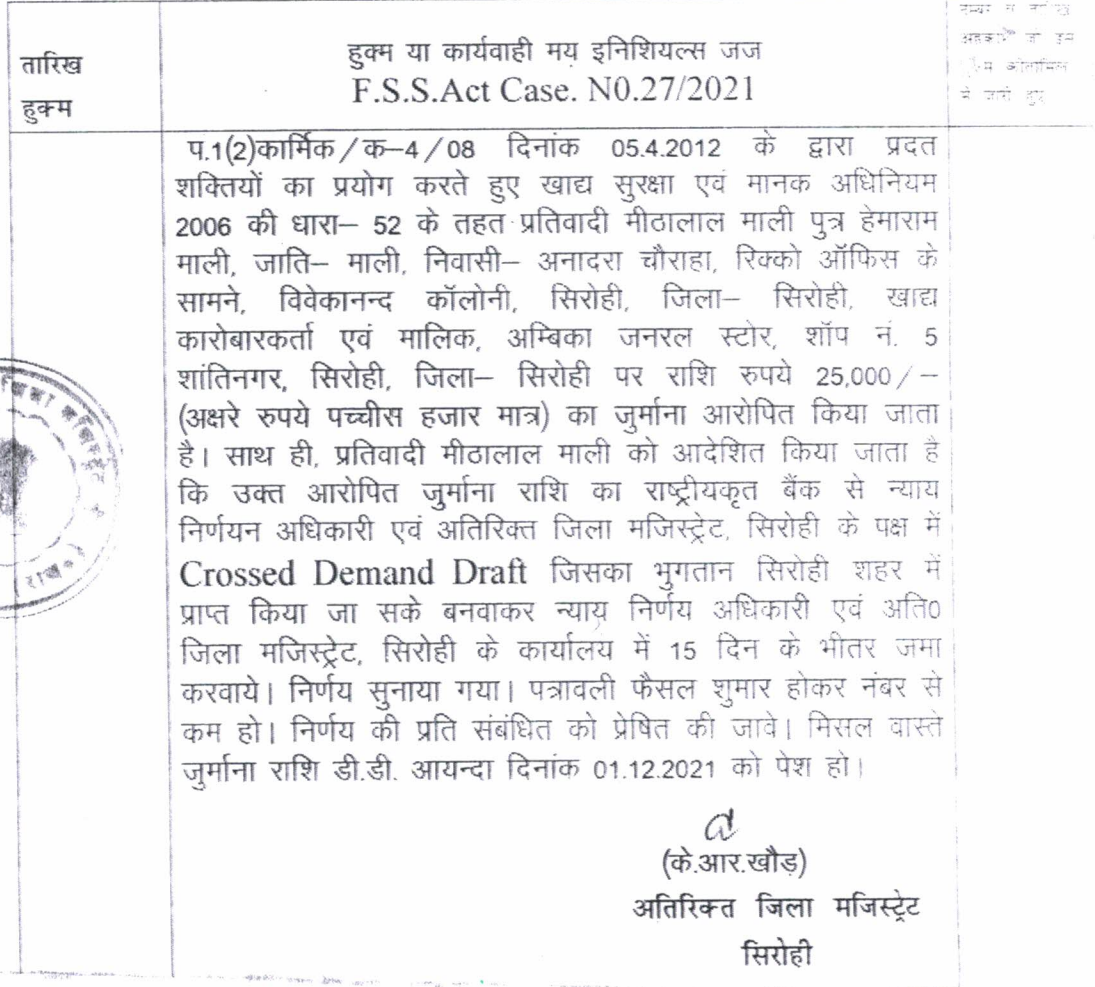 तारिख
हुक्म
हुक्म या कार्यवाही मय इनिशियल्स जज
F.S.S.Act Case. N0.27/2021
प.1(2)कार्मिक/क–4/08 दिनांक 05.4.2012 के द्वारा प्रदत
शक्तियों का प्रयोग करते हुए खाद्य सुरक्षा एवं मानक अधिनियम
2006 की धारा– 52 के तहत प्रतिवादी मीठालाल माली पुत्र हेमाराम
माली, जाति– माली, निवासी– अनादरा चौराहा, रिक्को ऑफिस के
सामने, विवेकानन्द कॉलोनी, सिरोही, जिला– सिरोही, खाद्य
कारोबारकर्ता एवं मालिक, अम्बिका जनरल स्टोर, शॉप नं. 5
शांतिनगर, सिरोही, जिला– सिरोही पर राशि रुपये 25,000/–
(अक्षरे रुपये पच्चीस हजार मात्र) का जुर्माना आरोपित किया जाता
है। साथ ही, प्रतिवादी मीठालाल माली को आदेशित किया जाता है
कि उक्त आरोपित जुर्माना राशि का राष्ट्रीयकृत बैंक से न्याय
निर्णयन अधिकारी एवं अतिरिक्त जिला मजिस्ट्रेट, सिरोही के पक्ष में
Crossed Demand Draft जिसका भुगतान सिरोही शहर में
प्राप्त किया जा सके बनवाकर न्याय निर्णय अधिकारी एवं अति०
जिला मजिस्ट्रेट, सिरोही के कार्यालय में 15 दिन के भीतर जमा
करवाये। निर्णय सुनाया गया। पत्रावली फैसल शुमार होकर नंबर से
कम हो। निर्णय की प्रति संबंधित को प्रेषित की जावे। मिसल वास्ते
जुर्माना राशि डी.डी. आयन्दा दिनांक 01.12.2021 को पेश हो।
(के.आर.खौड़)
अतिरिक्त जिला मजिस्ट्रेट
सिरोही